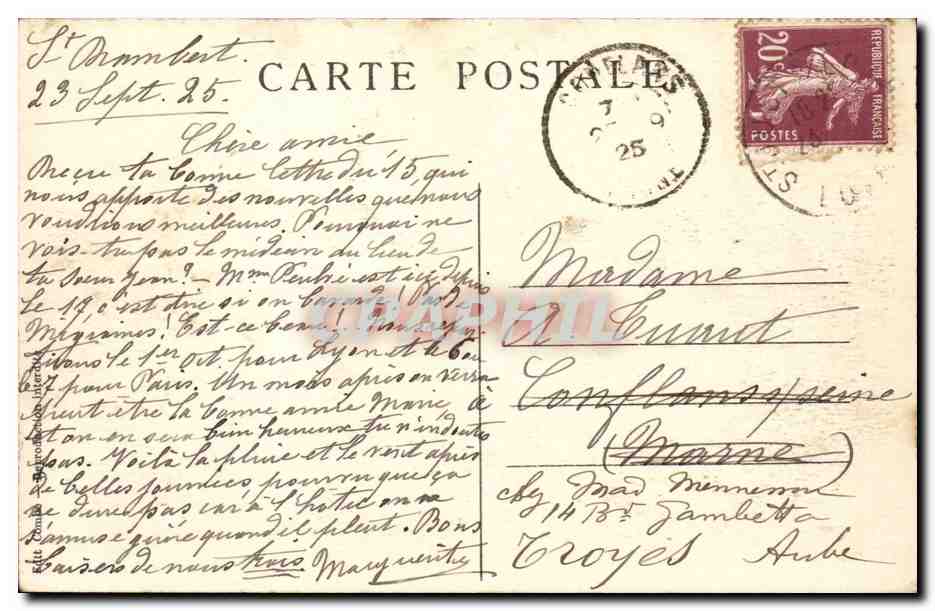 St Rambert.
23 Sept. 25.
CARTE POSTALE
Chère amie,
Reçu ta bonne lettre du 15, qui
nous apporte des nouvelles que nous
voudrions meilleures. Pourquoi ne
vois-tu pas le médecin au lieu de
ta sœur Jean? - Mme est ici depuis
le 17, c'est dire si on bavarde! Pas de
Migraines! Est-ce beau!
le 1er Oct. pour Lyon et le 6 ou
le 7 pour Paris. Un mois après on verra
peut être la bonne amie Marie, à
on en sera bien heureux tu n'en doutes
pas. Voilà la pluie et le vent après
de belles journées pourvu que ça
ne dure pas car à l'hôtel on ne
s'amuse guère quand il pleut. Bons
baisers de nous trois. Marguerite
Madame
A Cuarot
Conflans s/seine
(Marne)
chez Mad Mennesson
14 Bd Gambetta
Troyes Aube
REPUBLIQUE FRANÇAISE
20c
POSTES
25
CPAPHIL
Edit Combe Reproduction interdite